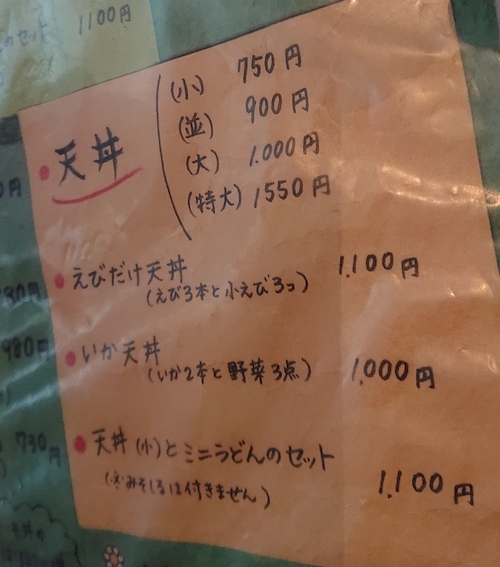 1100円
のセット
・天丼
(小) 750円
(並) 900円
(大) 1.000円
(特大) 1550円
・えびだけ天丼 1.100円
(えび3本と小えび3つ)
・いか天丼 1,000円
(いか2本と野菜3点)
・天丼(小)とミニうどんのセット
(※みそしるは付きません) 1.100円
980円
730円